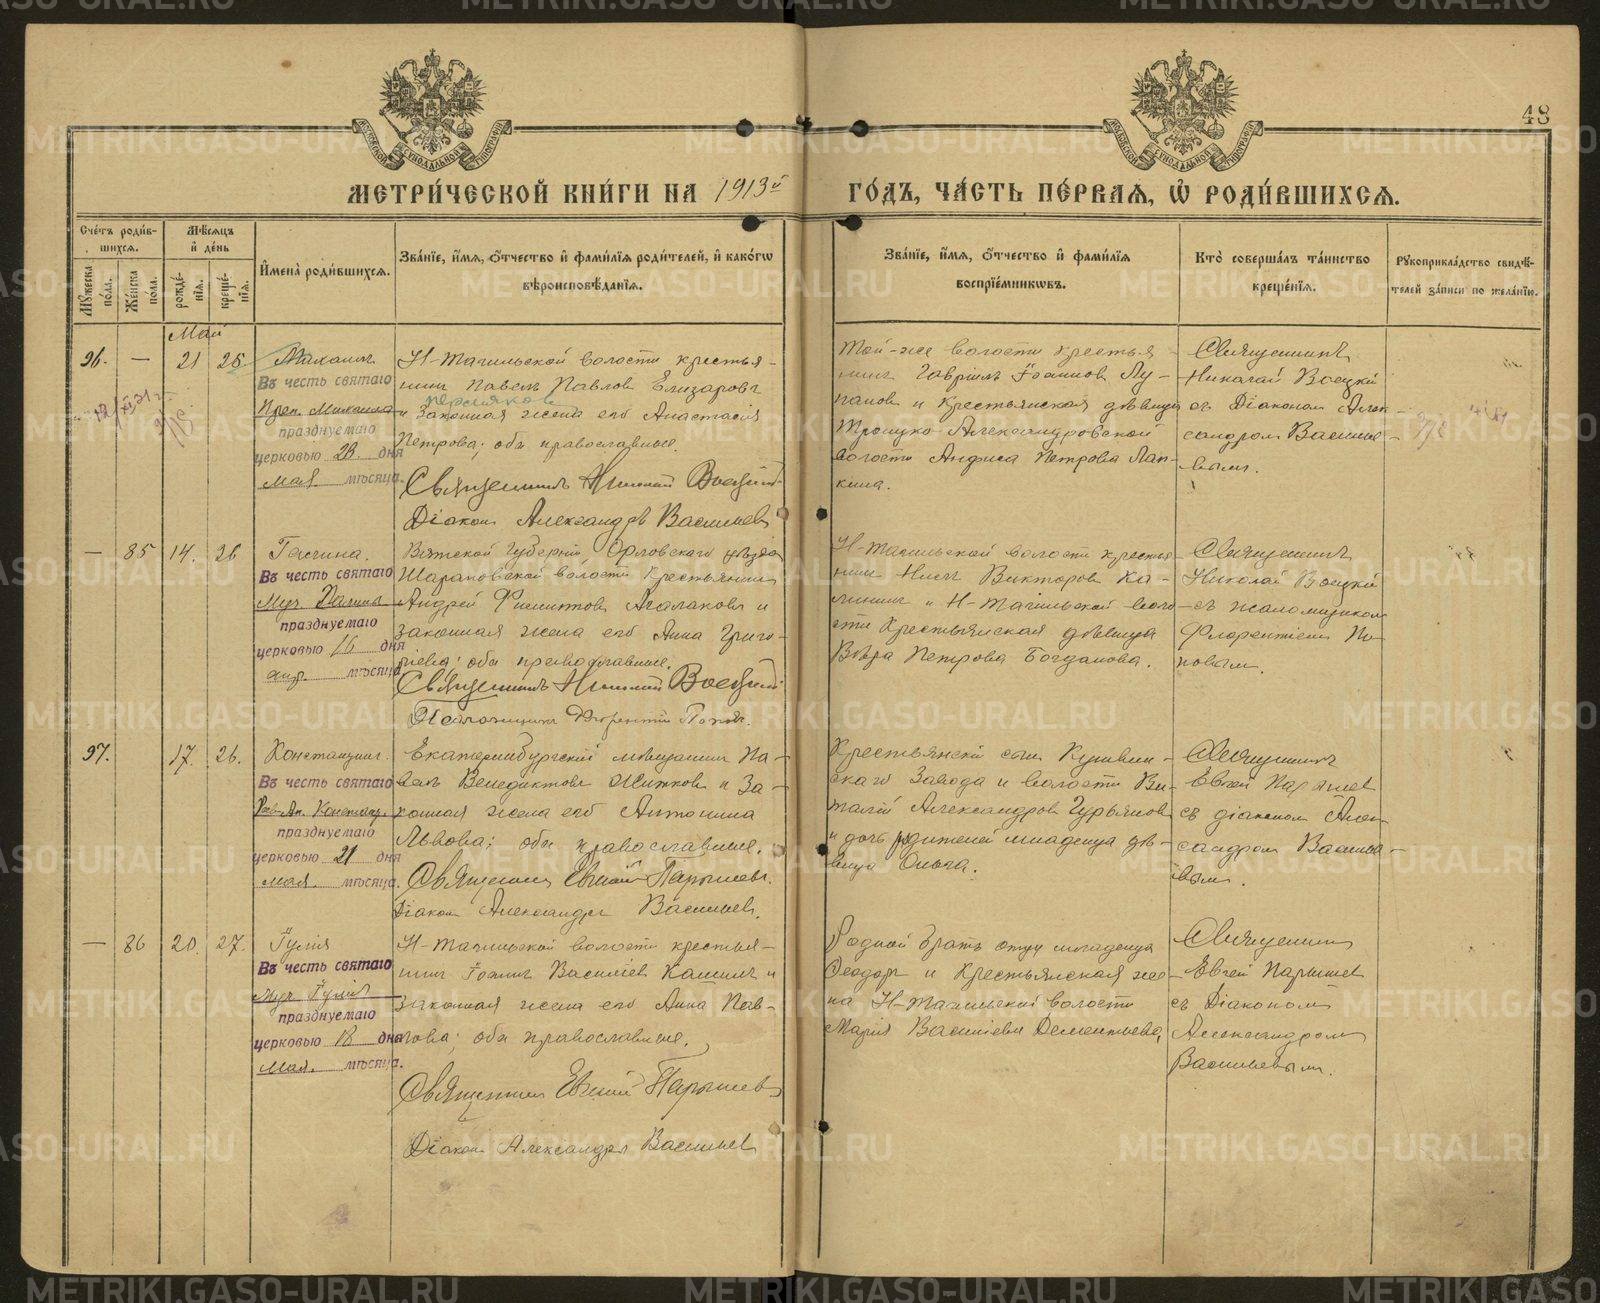 48
МЕТРИ́ЧЕСКОЙ КНИ́ГИ НА 1913й ГО́ДЪ, ЧА́СТЬ ПЕ́РВАЯ, Ѡ РОДИ́ВШИХСЯ.
Сче́тъ роди́в-
шихся.
Му́жеска
по́ла.
Же́нска
по́ла.
Мѣ́сяцъ
и де́нь
рожде́-
нія.
креще́-
нія.
Имена̀ роди́вшихся.
Зва́ніе, и́мя, о́тчество и фами́лія роди́телей, и како́гѡ
вѣроисповѣ́данія.
Зва́ніе, и́мя, о́тчество и фами́лія
воспріе́мниковъ.
Кто̀ соверша́лъ та́инство
креще́нія.
Рукоприкла́дство свидѣ́-
телей за́писи по жела́нію.
Май
96. — 21 25
Михаилъ
Въ честь святаго
Преп. Михаила
празднуемаго
церковью 23 дня
мая мѣсяца.
Н-Тагильской волости крестья-
нинъ Павелъ Павловъ Елизаровъ
и законная жена его Анастасія
Петрова; оба православные.
Священникъ Николай Воецкій
Діаконъ Александръ Васильевъ
Той-же волости крестья-
нинъ Гавріилъ Іоанновъ Лу-
пановъ и крестьянская дѣвица
Троицко-Александровской
волости Петрова Лап-
кина.
Священникъ
Николай Воецкій
съ Діакономъ Алек-
сандромъ Василье-
вымъ.
— 85 14. 26
Галина.
Въ честь святаго
Муч. Галины
празднуемаго
церковью 16 дня
апр. мѣсяца.
Вятской губерніи Орловскаго уѣзда
Шарановской волости крестьянинъ
Андрей Филипповъ Агалаковъ и
законная жена его Анна Григо-
ріева; оба православные.
Священникъ Николай Воецкій
Псаломщикъ Флорентій Поповъ.
Н-Тагильской волости крестья-
нинъ Викторовъ Ка-
лининъ и Н-Тагильской воло-
сти крестьянская дѣвица
Вѣра Петрова Богданова.
Священникъ
Николай Воецкій
съ псаломщикомъ
Флорентіемъ По-
повымъ.
97. 17. 26.
Константинъ.
Въ честь святаго
Рав-Ап. Констант.
празднуемаго
церковью 21 дня
мая. мѣсяца.
Екатеринбургскій мѣщанинъ Па-
велъ Венедиктовъ Житковъ и за-
конная жена его Антонина
Львова; оба православные.
Священникъ Евгеній Парышевъ.
Діаконъ Александръ Васильевъ.
Крестьянскій сынъ Кушвин-
скаго завода и волости Ви-
талій Александровъ Гурьяновъ
и дочь родителей младенца дѣ-
вица Ольга.
Священникъ
Евгеній Парышевъ
съ діакономъ Алек-
сандромъ Василье-
вымъ.
— 86 20. 27.
Іулія
Въ честь святаго
Муч Іуліи
празднуемаго
церковью 18 дня
мая. мѣсяца.
Н-Тагильской волости крестья-
нинъ Іоаннъ Василіевъ Калининъ и
законная жена его Анна Пав-
лова; оба православные.
Священникъ Евгеній Парышевъ
Діаконъ Александръ Васильевъ
Родной братъ отцу младенца
Ѳеодоръ и крестьянская же-
на Н-Тагильской волости
Марія Василіева Дементьева.
Священникъ
Евгеній Парышевъ
съ Діакономъ
Александромъ
Васильевымъ.
METRIKI.GASO-URAL.RU